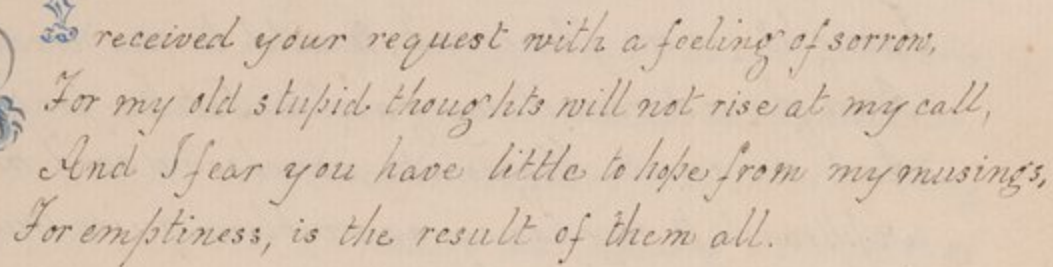 I received your request with a feeling of sorrow,
For my old stupid thoughts will not rise at my call,
And I fear you have little to hope from my musings,
For emptiness, is the result of them all.